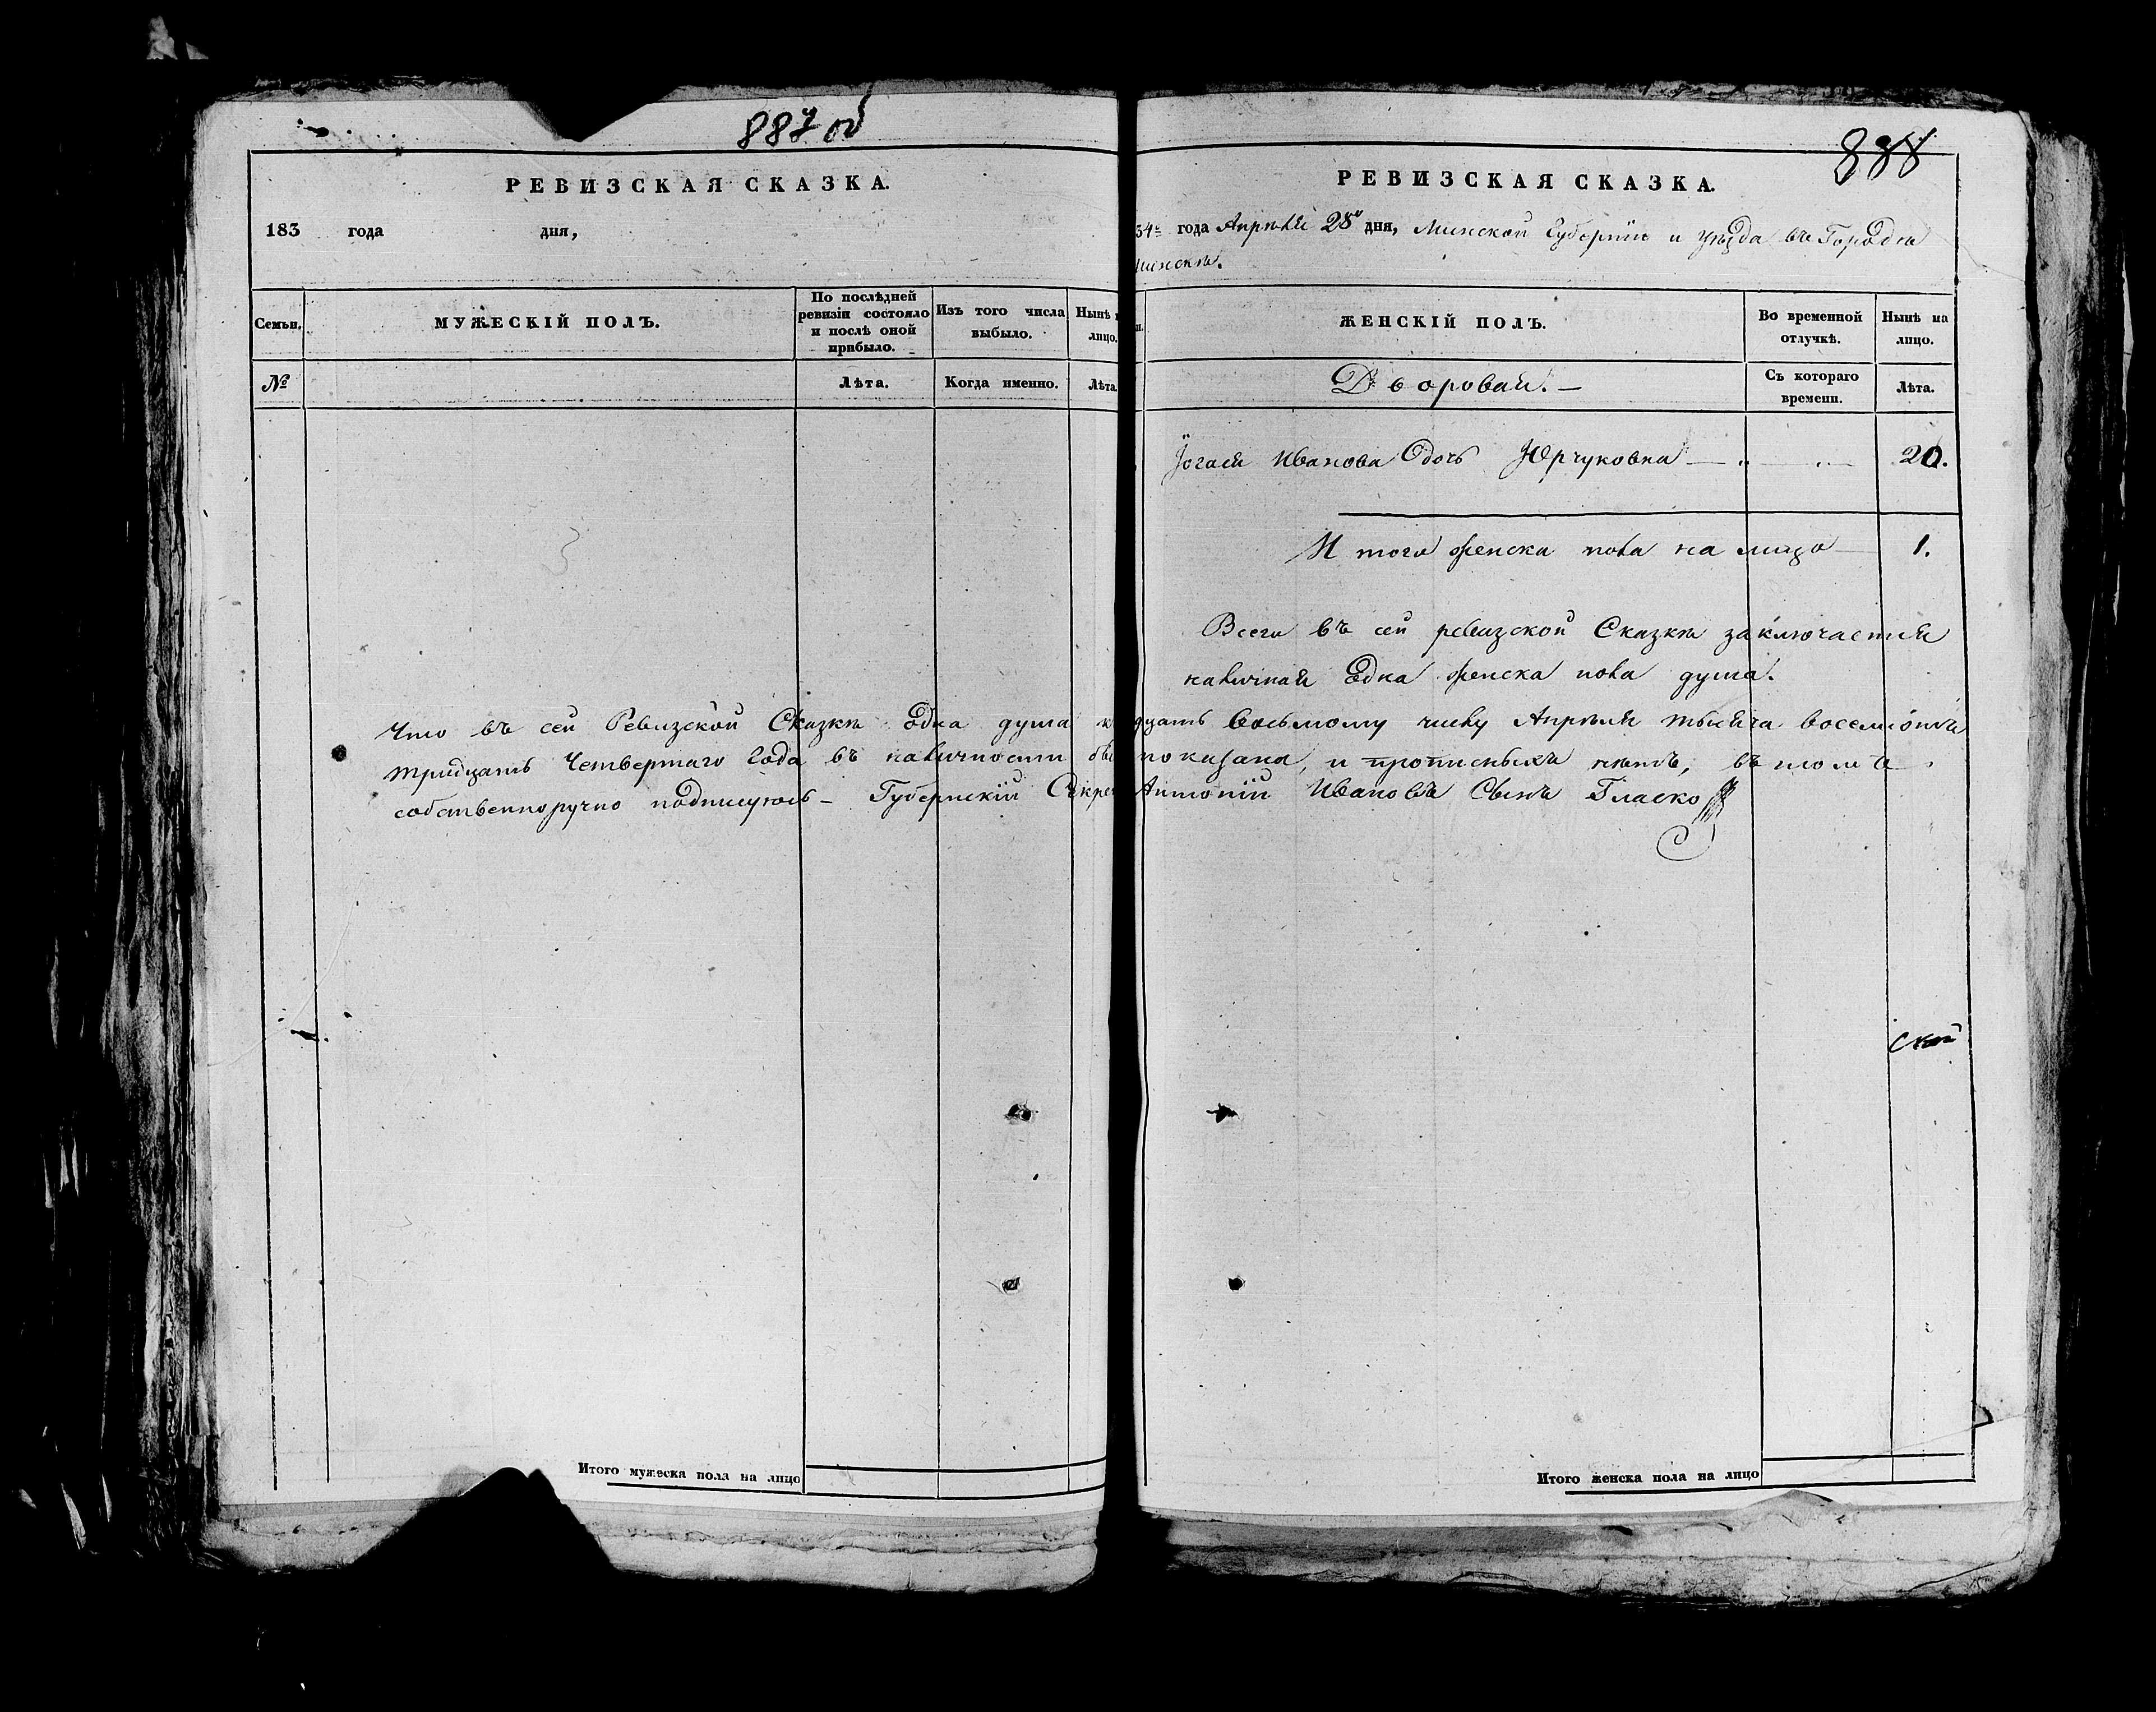 887 об
РЕВИЗСКАЯ СКАЗКА.
183 года дня,
Семьи.
МУЖЕСКІЙ ПОЛЪ.
По послѣдней
ревизіи состояло
и послѣ оной
прибыло.
Изъ того числа
выбыло.
Нынѣ
лицо.
№
Лѣта.
Когда именно.
Лѣта
888
РЕВИЗСКАЯ СКАЗКА.
34 года Апрѣля 28 дня, Минской Губерніи и уѣзда въ Городѣ
Минскѣ.
ЖЕНСКІЙ ПОЛЪ.
Во временной
отлучкѣ.
Нынѣ на
лицо.
Дворовая. —
Съ котораго
времени.
Лѣта.
Иванова дочь Юрчуковна — 20.
Итого женска пола на лицо — 1.
Всего въ сей ревизской Сказкѣ заключается
наличная Една женска пола душа.
Что въ сей Ревизской Сказкѣ одна душа к дцать восьмому числу Апрѣля тысяча восемсотъ
тридцать Четвертаго Года въ наличности показана, и прописныхъ нѣтъ, въ томъ
собственноручно подписуюсь — Губернскій Секре Антоній Ивановъ Сынъ Гласко
ской
Итого мужеска пола на лицо
Итого женска пола на лицо